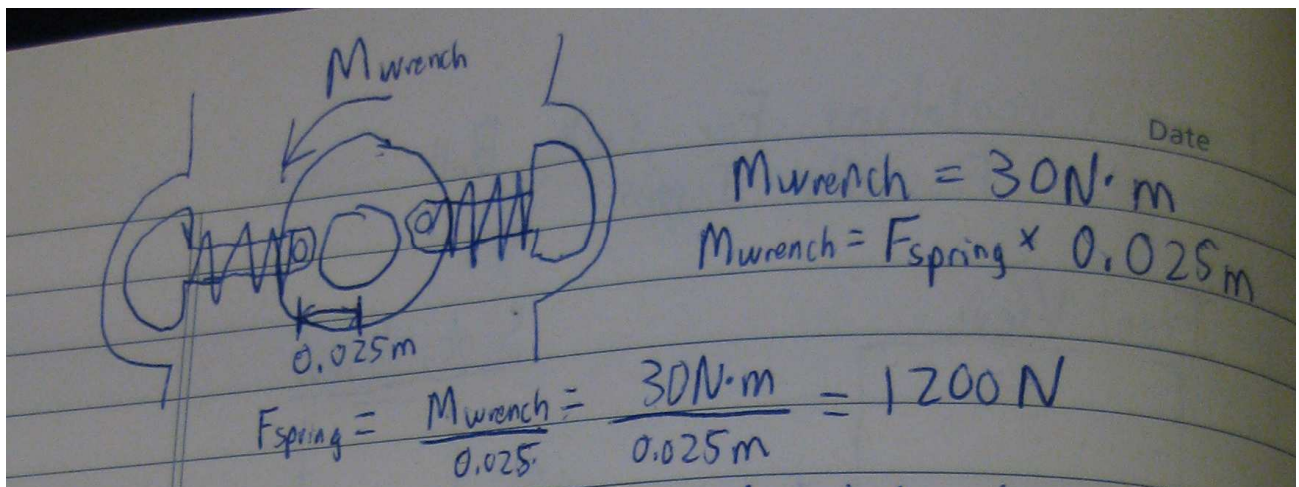 Mwrench
Date
Mwrench = 30N·m
Mwrench = Fspring × 0.025m
0.025m
Fspring = Mwrench / 0.025. = 30N·m / 0.025m = 1200N